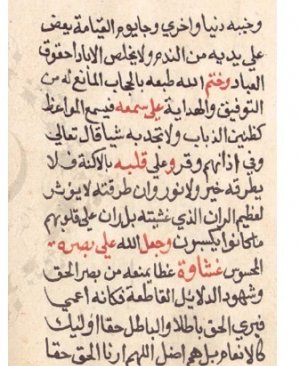 وخيبه دنيا واخري وجا يوم القيامة يعض
علي يديه من الندم ولا يخلص الا بادا حقوق
العباد وختم الله طبعه بالحجاب المانع له من
التوفيق والهداية علي سمعه فيسمع المواعظ
كطنين الذباب ولا تجد به شيا قال تعالي
وفي اذانهم وقر وعلي قلبه بالاكنة فلا
يطرقه خير ولا نور وان طرقته لا يوثر
لعظيم الران الذي غشيته بل ران علي قلوبهم
ما كانوا يكسبون وجعل الله علي بصره
المحسوس غشاوة غطا يمنعه من بصر الحق
وشهود الدلايل القاطعة فكانه اعمي
فيري الحق باطلا والباطل حقا اوليك
كالانعام بل هم اضل اللهم ارنا الحق حقا